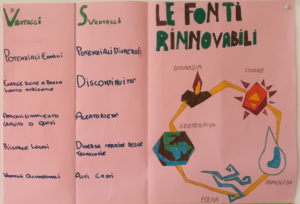 VANTAGGI
SVANTAGGI
POTENZIALI ENORMI
POTENZIALI DISPERSI
ENERGIE PULITE A BASSO
IMPATTO AMBIENTALE
DISCONTINUITÀ
APPROVVIGIONAMENTO
GRATUITO O QUASI
ALEATORIETÀ
RISORSE LOCALI
DIVERSA MATURITÀ DELLE
TECNOLOGIE
VANTAGGI OCCUPAZIONALI
ALTI COSTI
LE FONTI
RINNOVABILI
BIOMASSA
SOLARE
GEOTERMICA
IDRAULICA
EOLICA